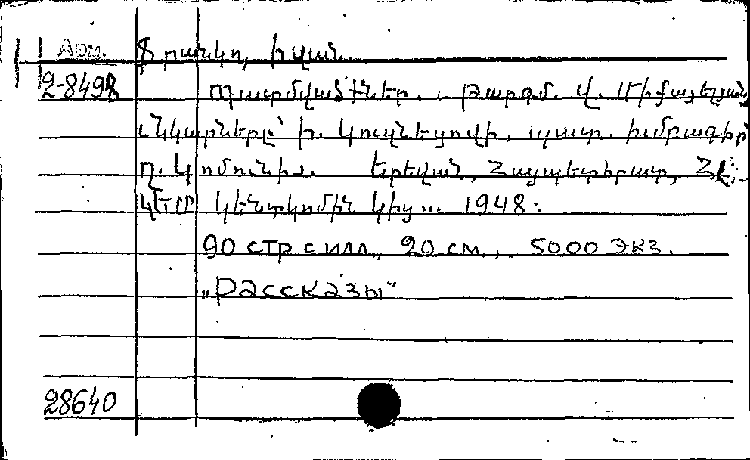 Арм. Ֆրանկո, Իվան
2-8498 Պատմվածքներ. թարգմ. Վ. Միքայելյան,
նկարները՝ Ի. Կուզնեցովի, պատ. խմբագիր
Ղ. Կոմունիս. Երեվան, Հայպետհրատ,
կենտկոմին կից 1948:
90 стр с илл, 20 см., 5000 экз.
"Рассказы"
28640